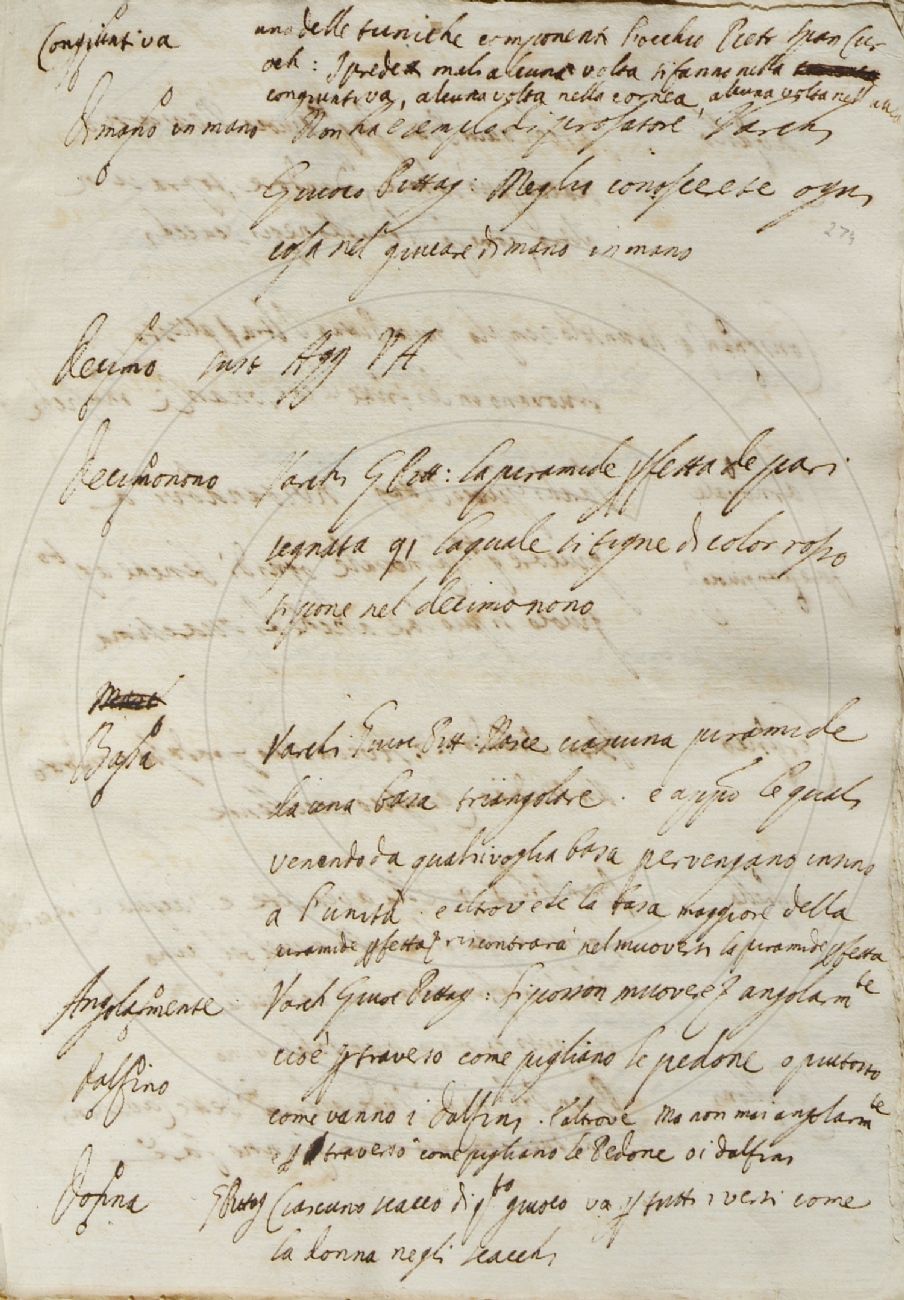 Congiuntiva una delle tuniche componenti l'occhio Pietr Span Cur
och: I predett mali alcuna volta si fanno nella
congiuntiva, alcuna volta nella cornea, alcuna volta nel
di mano in mano Non ha esemplo di prosatore Varch
Giuoco Pittag: Meglio conoscerete ogni
cosa nel giucare di mano in mano
274
Decimo sust Agg VA
Decimonono Varch G Pitt: la piramide pfetta de pari
segnata 91 laquale si tigne di color rosso
si pone nel decimonono
Basa Varch: Giuoc Pitt: Nasce ciascuna piramide
da una basa triangolare. e app.o le quali
venendo da qualsivoglia basa pervengano insino
a l'unità. e altrove se la basa maggiore della
piramide pfetta riscontrara nel muoversi la piramide pfetta
Angolarmente Varch Giuoc Pittag: Si posson muovere angolarm.te
cioè p traverso come pigliano le pedone o piuttosto
Dalfino come vanno i dalfini. e altrove Ma non mai angolarm.te
p traverso come pigliano le Pedone o i dalfini
Donna G Pittag Ciascuno scacco di q.to giuoco va p tutti i versi come
la donna negli scacchi